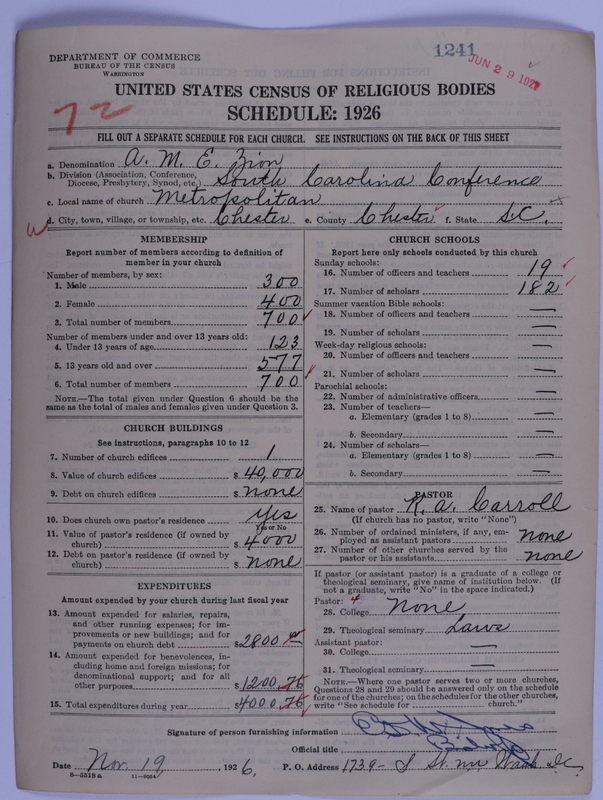 1241
JUN 29 1927
72
DEPARTMENT OF COMMERCE
BUREAU OF THE CENSUS
WASHINGTON
UNITED STATES CENSUS OF RELIGIOUS BODIES
SCHEDULE: 1926
FILL OUT A SEPARATE SCHEDULE FOR EACH CHURCH. SEE INSTRUCTIONS ON THE BACK OF THIS SHEET
a. Denomination A. M. E. Zion
b. Division (Association, Conference,
Diocese, Presbytery, Synod, etc.) South Carolina Conference
c. Local name of church Metropolitan
d. City, town, village, or township, etc. Chester e. County Chester f. State S.C.
MEMBERSHIP
Report number of members according to definition of
member in your church
Number of members, by sex:
1. Male 300
2. Female 400
3. Total number of members 700
Number of members under and over 13 years old:
4. Under 13 years of age 123
5. 13 years old and over 577
6. Total number of members 700
NOTE.—The total given under Question 6 should be
same as the total of males and females given under Question 3.
CHURCH BUILDINGS
See instructions, paragraphs 10 to 12
7. Number of church edifices 1
8. Value of church edifices $ 40,000
9. Debt on church edifices $ none
10. Does church own pastor's residence yes
Yes or No
11. Value of pastor's residence (if owned by
church) $ 4000
12. Debt on pastor's residence (if owned by
church) $ none
EXPENDITURES
Amount expended by your church during last fiscal year
13. Amount expended for salaries, repairs,
and other running expenses; for im-
provements or new buildings; and for
payments on church debt $ 2800
14. Amount expended for benevolences, in-
cluding home and foreign missions; for
denominational support; and for all
other purposes $ 1200.76
15. Total expenditures during year $ 4000.76
CHURCH SCHOOLS
Report here only schools conducted by this church
Sunday schools:
16. Number of officers and teachers 19
17. Number of scholars 182
Summer vacation Bible schools:
18. Number of officers and teachers —
19. Number of scholars —
Week-day religious schools:
20. Number of officers and teachers —
21. Number of scholars —
Parochial schools:
22. Number of administrative officers —
23. Number of teachers—
a. Elementary (grades 1 to 8) —
b. Secondary —
24. Number of scholars—
a. Elementary (grades 1 to 8) —
b. Secondary —
PASTOR
25. Name of pastor R. A. Carroll
(If church has no pastor, write "None")
26. Number of ordained ministers, if any, em-
ployed as assistant pastors none
27. Number of other churches served by the
pastor or his assistants none
If pastor (or assistant pastor) is a graduate of a college or
theological seminary, give name of institution below. (If
not a graduate, write "No" in the space indicated.)
Pastor: 4
28. College None
29. Theological seminary
Assistant pastor:
30. College —
31. Theological seminary —
NOTE.—Where one pastor serves two or more churches,
Questions 28 and 29 should be answered only on the schedule
for one of the churches; on the schedules for the other churches,
write "See schedule for church."
Signature of person furnishing information
Official title
Date Nov. 19, 1926, P. O. Address 1739- S St. nw Wash D.C.
8—5518 a 11—9064